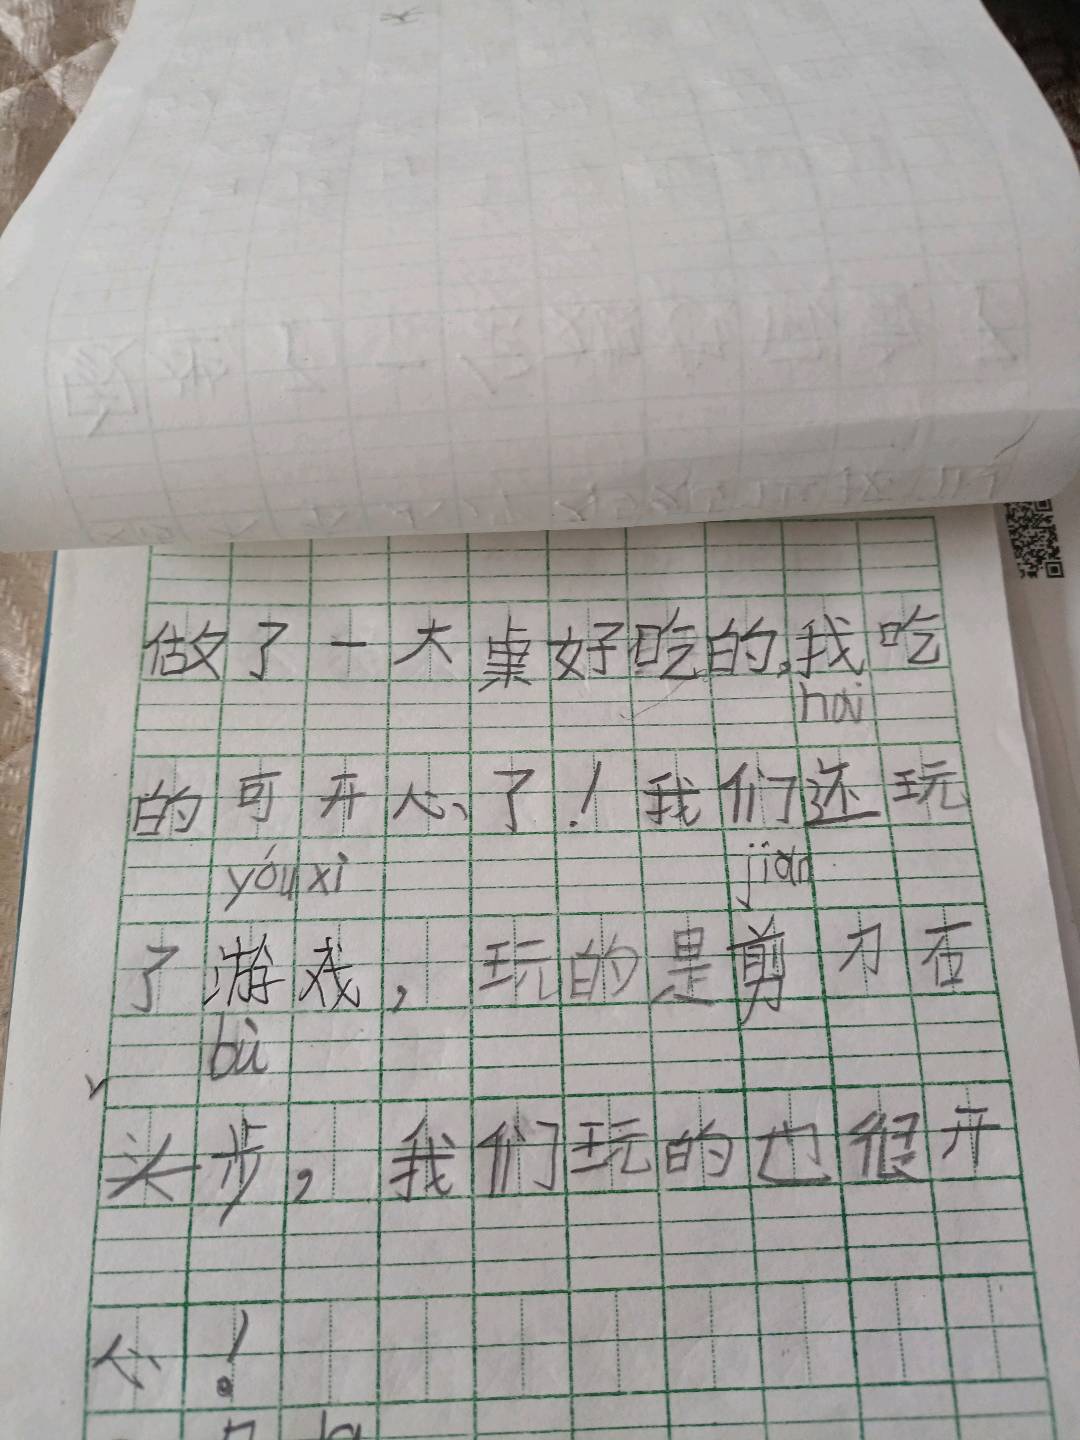 做了一大桌好吃的,我吃
hai
的可开心了！我们还玩
yóu xì jian
了游戏，玩的是剪刀石
bù
头步，我们玩的也很开
心！